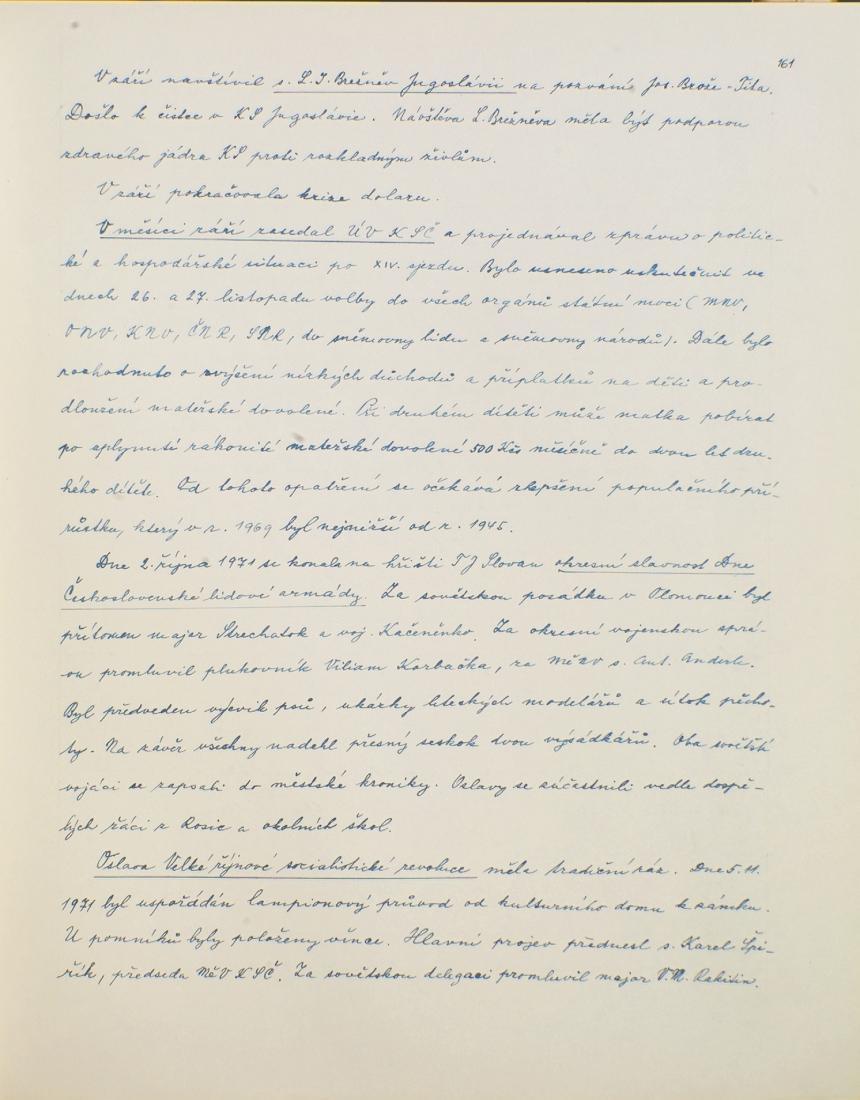 161
V září navštívil s. L. I. Brežněv Jugoslávii na pozvání Jos. Broze - Tita.
Došlo k čistce v KS Jugoslávie. Návštěva L. Brežněva měla být podporou
zdravého jádra KS proti rozkladným živlům.
V září pokračovala krize dolaru.
V měsíci září zasedal ÚV KSČ a projednával zprávu o politic-
ké a hospodářské situaci po XIV. sjezdu. Bylo usneseno uskutečnit ve
dnech 26. a 27. listopadu volby do všech orgánů státní moci ( MNV,
ONV, KNV, ČNR, SNR, do sněmovny lidu a sněmovny národů). Dále bylo
rozhodnuto o zvýšení nízkých důchodů a příplatků na děti a pro-
dloužení mateřské dovolené. Při druhém dítěti může matka pobírat
po uplynutí zákonité mateřské dovolené 500 Kčs měsíčně do dvou let dru-
hého dítěte. Od tohoto opatření se očekává zlepšení populačního pří-
růstku, který v r. 1969 byl nejnižší od r. 1945.
Dne 2. října 1971 se konala na hřišti TJ Slovan okresní slavnost Dne
Československé lidové armády. Za sovětskou posádku v Olomouci byl
přítomen major Strechatok a voj. Kačeněnko. Za okresní vojenskou sprá-
vu promluvil plukovník Viliam Korbačka, za MěNV s. Ant. Anderle.
Byl předveden výcvik psů, ukázky leteckých modelářů a útok pěcho-
ty. Na závěr všechny nadchl přesný seskok dvou výsadkářů. Oba sovětští
vojáci se zapsali do městské kroniky. Oslavy se zúčastnili vedle dospě-
lých žáci z Rosic a okolních škol.
Oslava Velké říjnové socialistické revoluce měla tradiční ráz. Dne 5. 11.
1971 byl uspořádán lampionový průvod od kulturního domu k zámku.
U pomníků byly položeny věnce. Hlavní projev přednesl s. Karel Špi-
řík, předseda MěV KSČ. Za sovětskou delegaci promluvil major V. N. Rakitin.